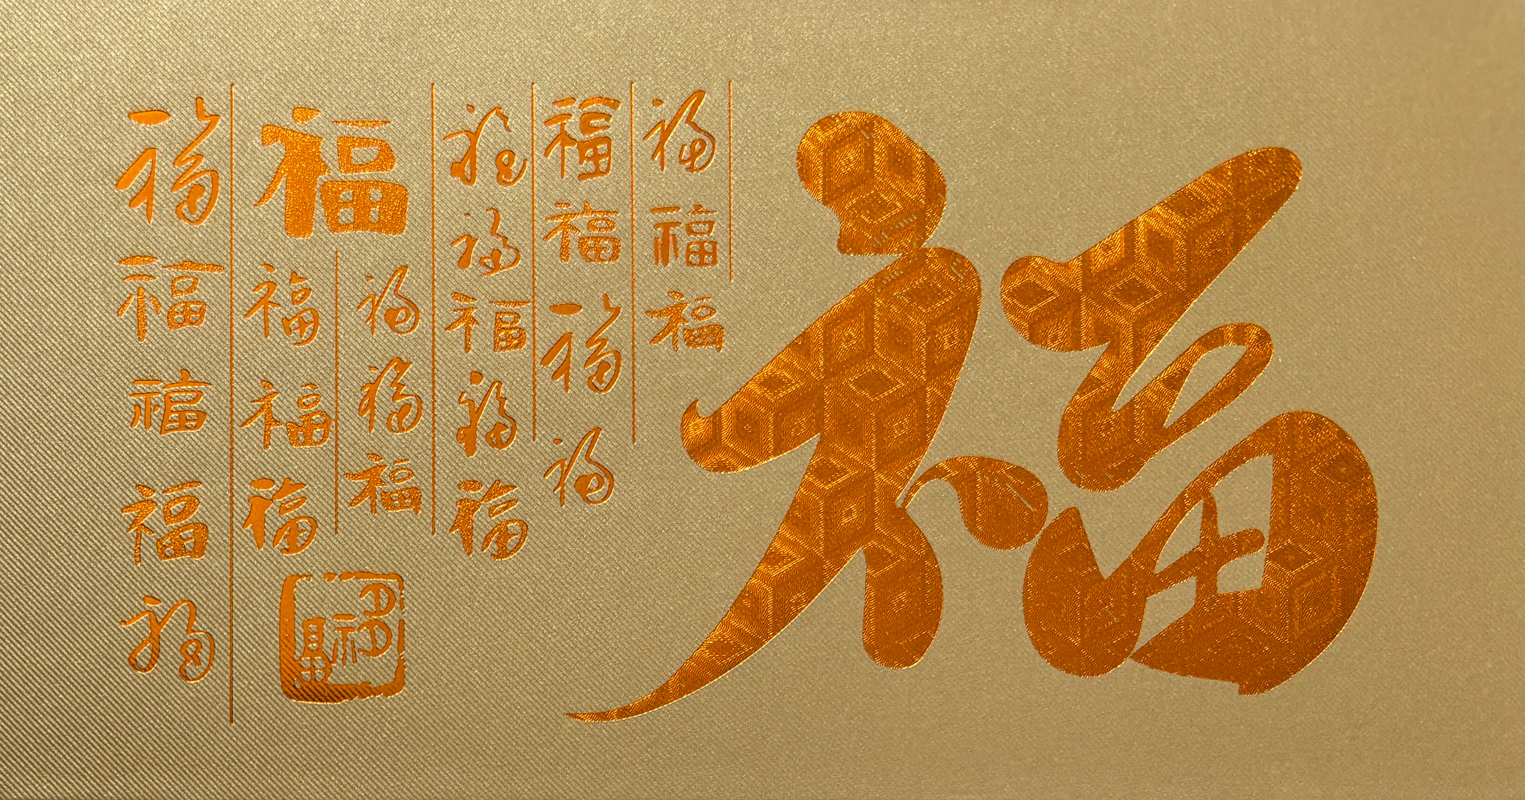 福
福福福
福福福福
福福福福福
福
福福福
福福福
福福福福福